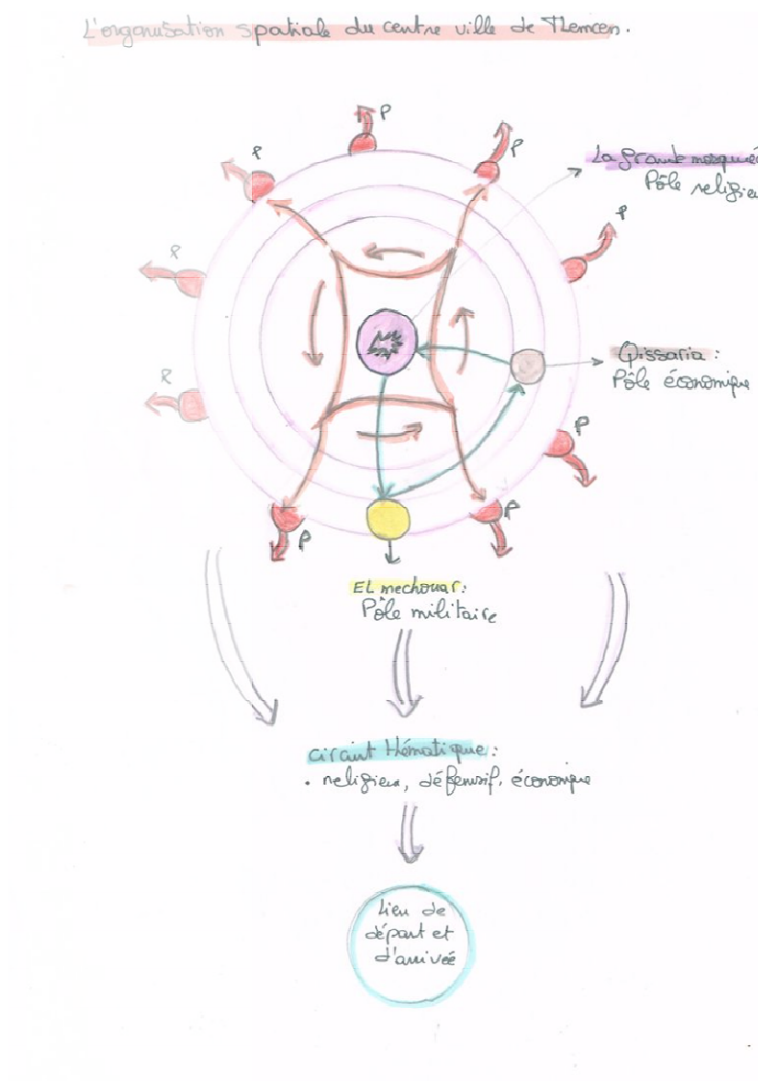 L'organisation spatiale du centre ville de Tlemcen.
P
P
P
P
P
P
P
P
P
P
La grande mosquée
Pôle religie
Qissaria :
Pôle économique
EL mechouar :
Pôle militaire
circuit thématique :
• religieux, défensif, économique
Lieu de
départ et
d'arrivée